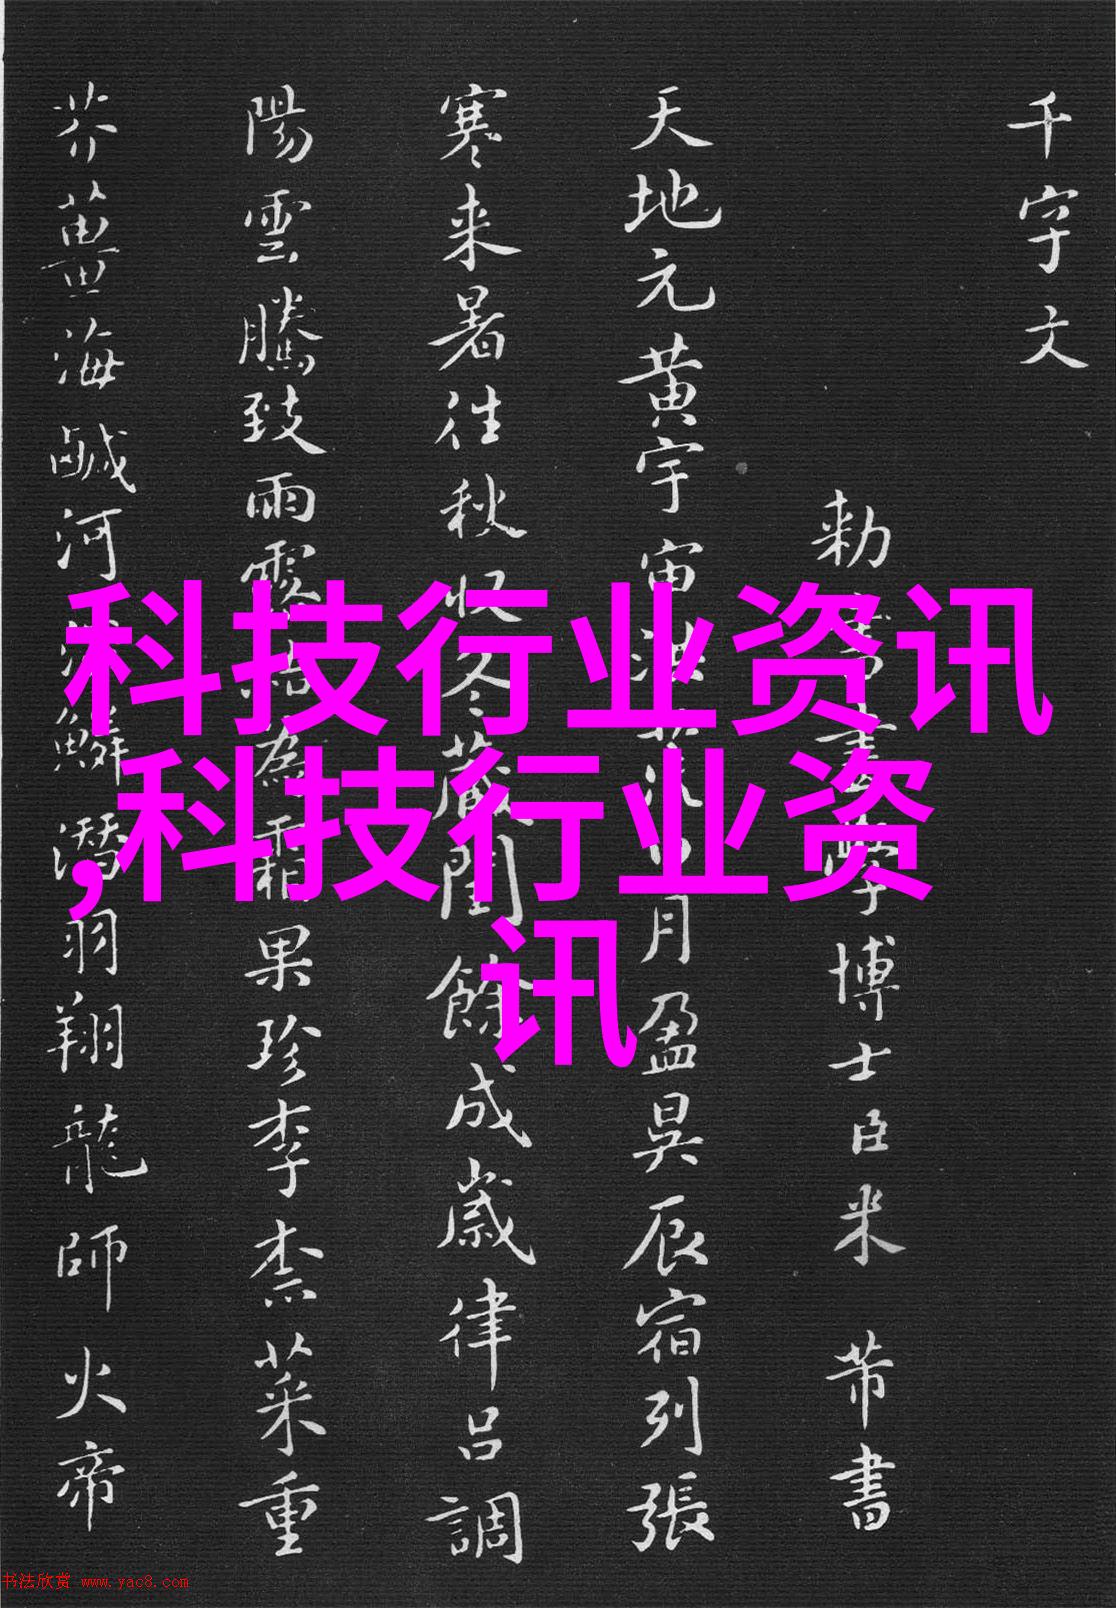 千字文
勅書畫學博士臣米芾書
天地元黄宇宙洪荒日月盈昃辰宿列張
寒来暑往秋収冬蔵閏餘成歳律吕調
陽雲騰致雨露結為霜果珍李柰菜重
芥薑海鹹河淡鱗潛羽翔龍師火帝
科技行业资讯
,科技行业资
讯
书法欣赏 www.yac8.com